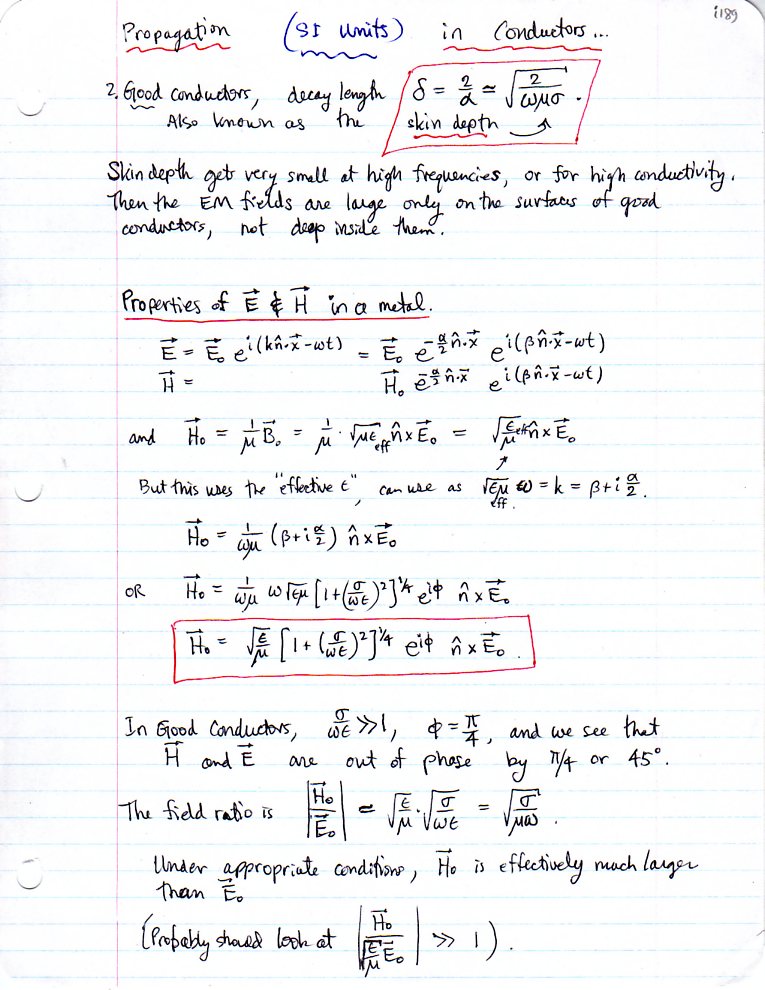 i189
Propagation (SI Units) in Conductors...
2. Good conductors, decay length δ = 2/α ≃ √(2/(ωμσ)).
Also known as the skin depth
Skin depth gets very small at high frequencies, or for high conductivity.
Then the EM fields are large only on the surfaces of good
conductors, not deep inside them.
Properties of E⃗ & H⃗ in a metal.
E⃗ = E⃗₀ e^{i(kn̂·x⃗-ωt)} = E⃗₀ e^{-α/2 n̂·x⃗} e^{i(βn̂·x⃗-ωt)}
H⃗ = H⃗₀ e^{-α/2 n̂·x⃗} e^{i(βn̂·x⃗-ωt)}
and H⃗₀ = 1/μ B⃗₀ = 1/μ · √(με_eff) n̂×E⃗₀ = √(ε_eff/μ) n̂×E⃗₀
But this uses the "effective ε", can use as √(εμ)_eff ω = k = β+i α/2.
H⃗₀ = 1/(ωμ) (β+i α/2) n̂×E⃗₀
OR H⃗₀ = 1/(ωμ) ω√(εμ) [1+(σ/(ωε))²]^{1/4} e^{iϕ} n̂×E⃗₀
H⃗₀ = √(ε/μ) [1+(σ/(ωε))²]^{1/4} e^{iϕ} n̂×E⃗₀.
In Good Conductors, σ/(ωε) ≫1, ϕ=π/4, and we see that
H⃗ and E⃗ are out of phase by π/4 or 45°.
The field ratio is |H⃗₀/E⃗₀| ≃ √(ε/μ)·√(σ/(ωε)) = √(σ/(μω)).
Under appropriate conditions, H⃗₀ is effectively much larger
than E⃗₀
(Probably should look at |H⃗₀/(√(ε/μ)E⃗₀)| ≫ 1).